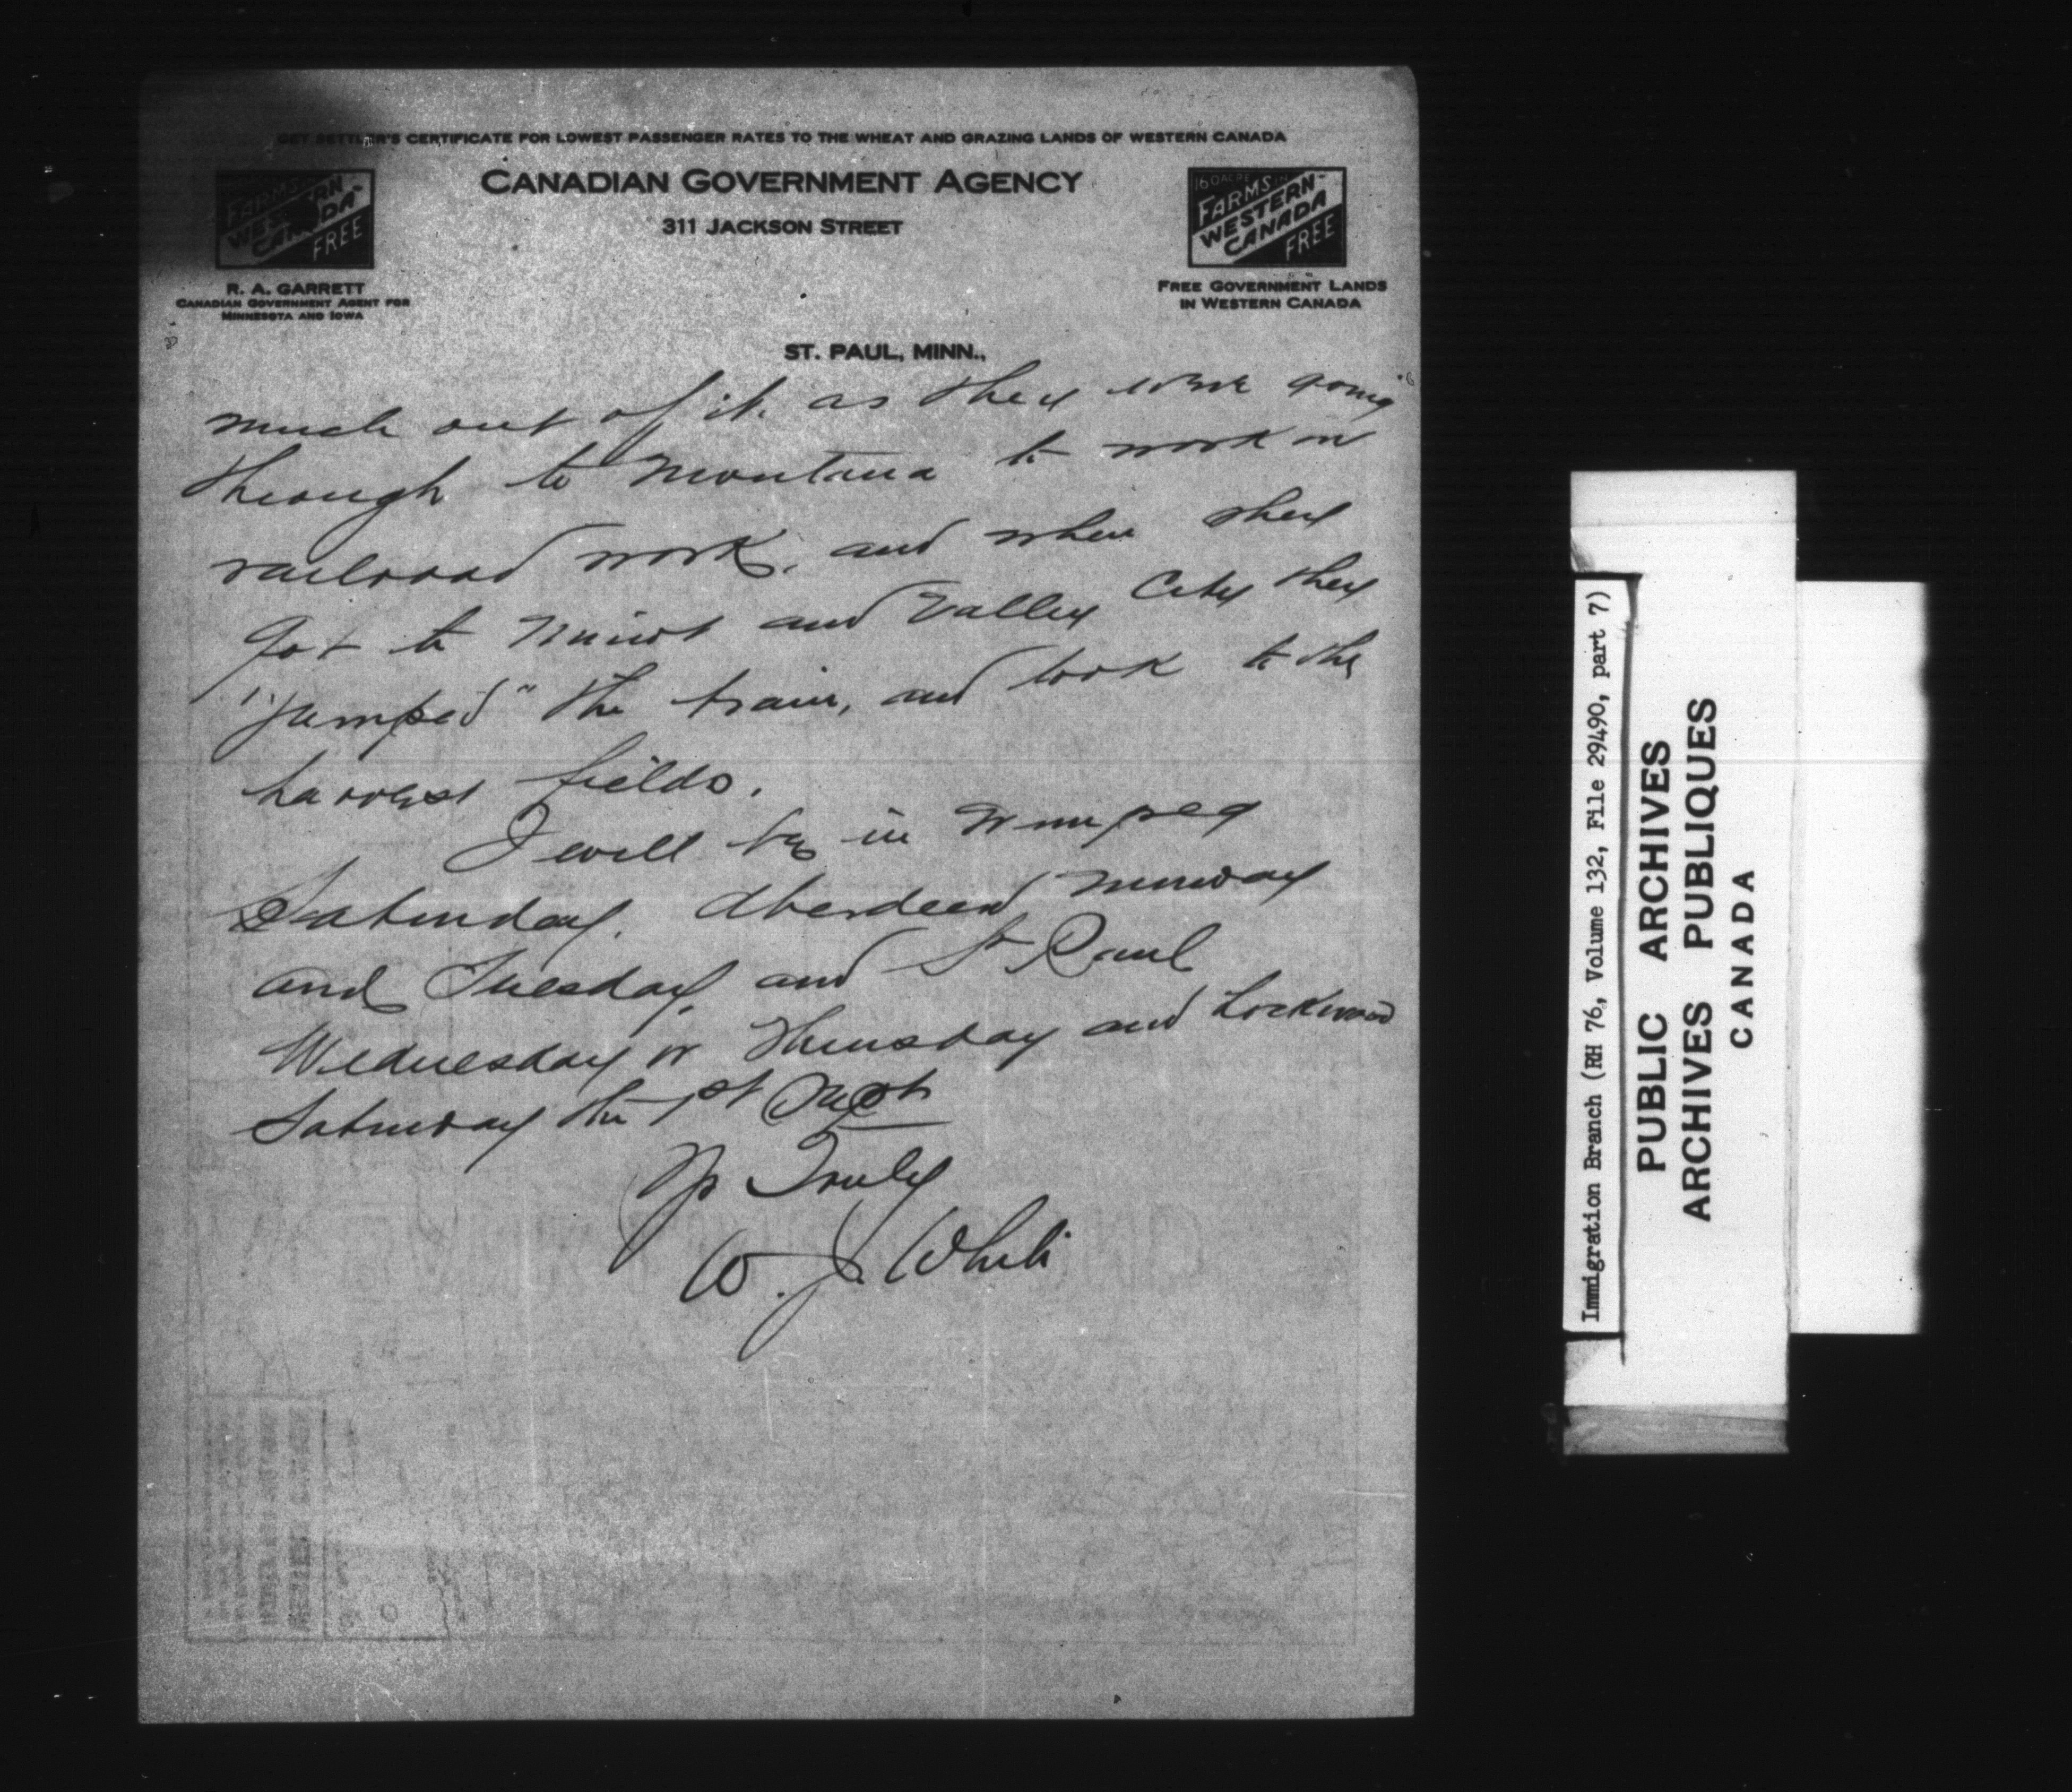 GET SETTLER'S CERTIFICATE FOR LOWEST PASSENGER RATES TO THE WHEAT AND GRAZING LANDS OF WESTERN CANADA
CANADIAN GOVERNMENT AGENCY
311 JACKSON STREET
FARMS
WESTERN
CANADA
FREE
R. A. GARRETT
CANADIAN GOVERNMENT AGENT FOR
MINNESOTA AND IOWA
160 ACRE
FARMS IN
WESTERN-
CANADA
FREE
FREE GOVERNMENT LANDS
IN WESTERN CANADA
ST. PAUL, MINN.,
much out of it. as they were going
through to Montana to work on
railroad work, and when they
got to Minot and Valley City they
"jumped" the train, and took to the
harvest fields.
I will be in Winnipeg
Saturday. Aberdeen Monday
and Tuesday, and St Paul
Wednesday or Thursday and Lockwood
Saturday the 1st
Yr Truly
W. J. White
Immigration Branch (RH 76, Volume 132, File 29490, part 7)
PUBLIC ARCHIVES
ARCHIVES PUBLIQUES
CANADA